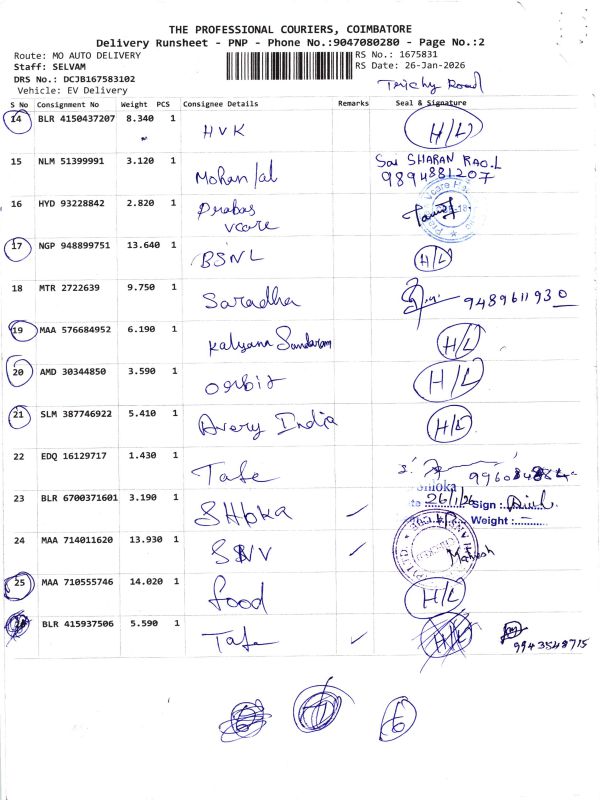 THE PROFESSIONAL COURIERS, COIMBATORE
Delivery Runsheet - PNP - Phone No.:9047080280 - Page No.:2
Route: MO AUTO DELIVERY
RS No.: 1675831
Staff: SELVAM
RS Date: 26-Jan-2026
DRS No.: DCJB167583102
Vehicle: EV Delivery
Trichy Road
S No Consignment No Weight PCS Consignee Details Remarks Seal & Signature
14 BLR 4150437207 8.340 1 HVK H/L
15 NLM 51399991 3.120 1 Mohanlal Sai SHARAN RAO.L
9894881207
16 HYD 93228842 2.820 1 Prabas
vcare
17 NGP 948899751 13.640 1 BSNL H/L
18 MTR 2722639 9.750 1 Saradha 9489611930
19 MAA 576684952 6.190 1 Kalyana Sundaram H/L
20 AMD 30344850 3.590 1 Orbit H/L
21 SLM 387746922 5.410 1 Avery India H/L
22 EDQ 16129717 1.430 1 Tafe
23 BLR 6700371601 3.190 1 SHloka ✓ Shloka
26/1/26 Sign :
Weight :
24 MAA 714011620 13.930 1 SNV ✓ Mahesh
25 MAA 710555746 14.020 1 food H/L
BLR 415937506 5.590 1 Tafe ✓ H/L 9943548715
6 7 6